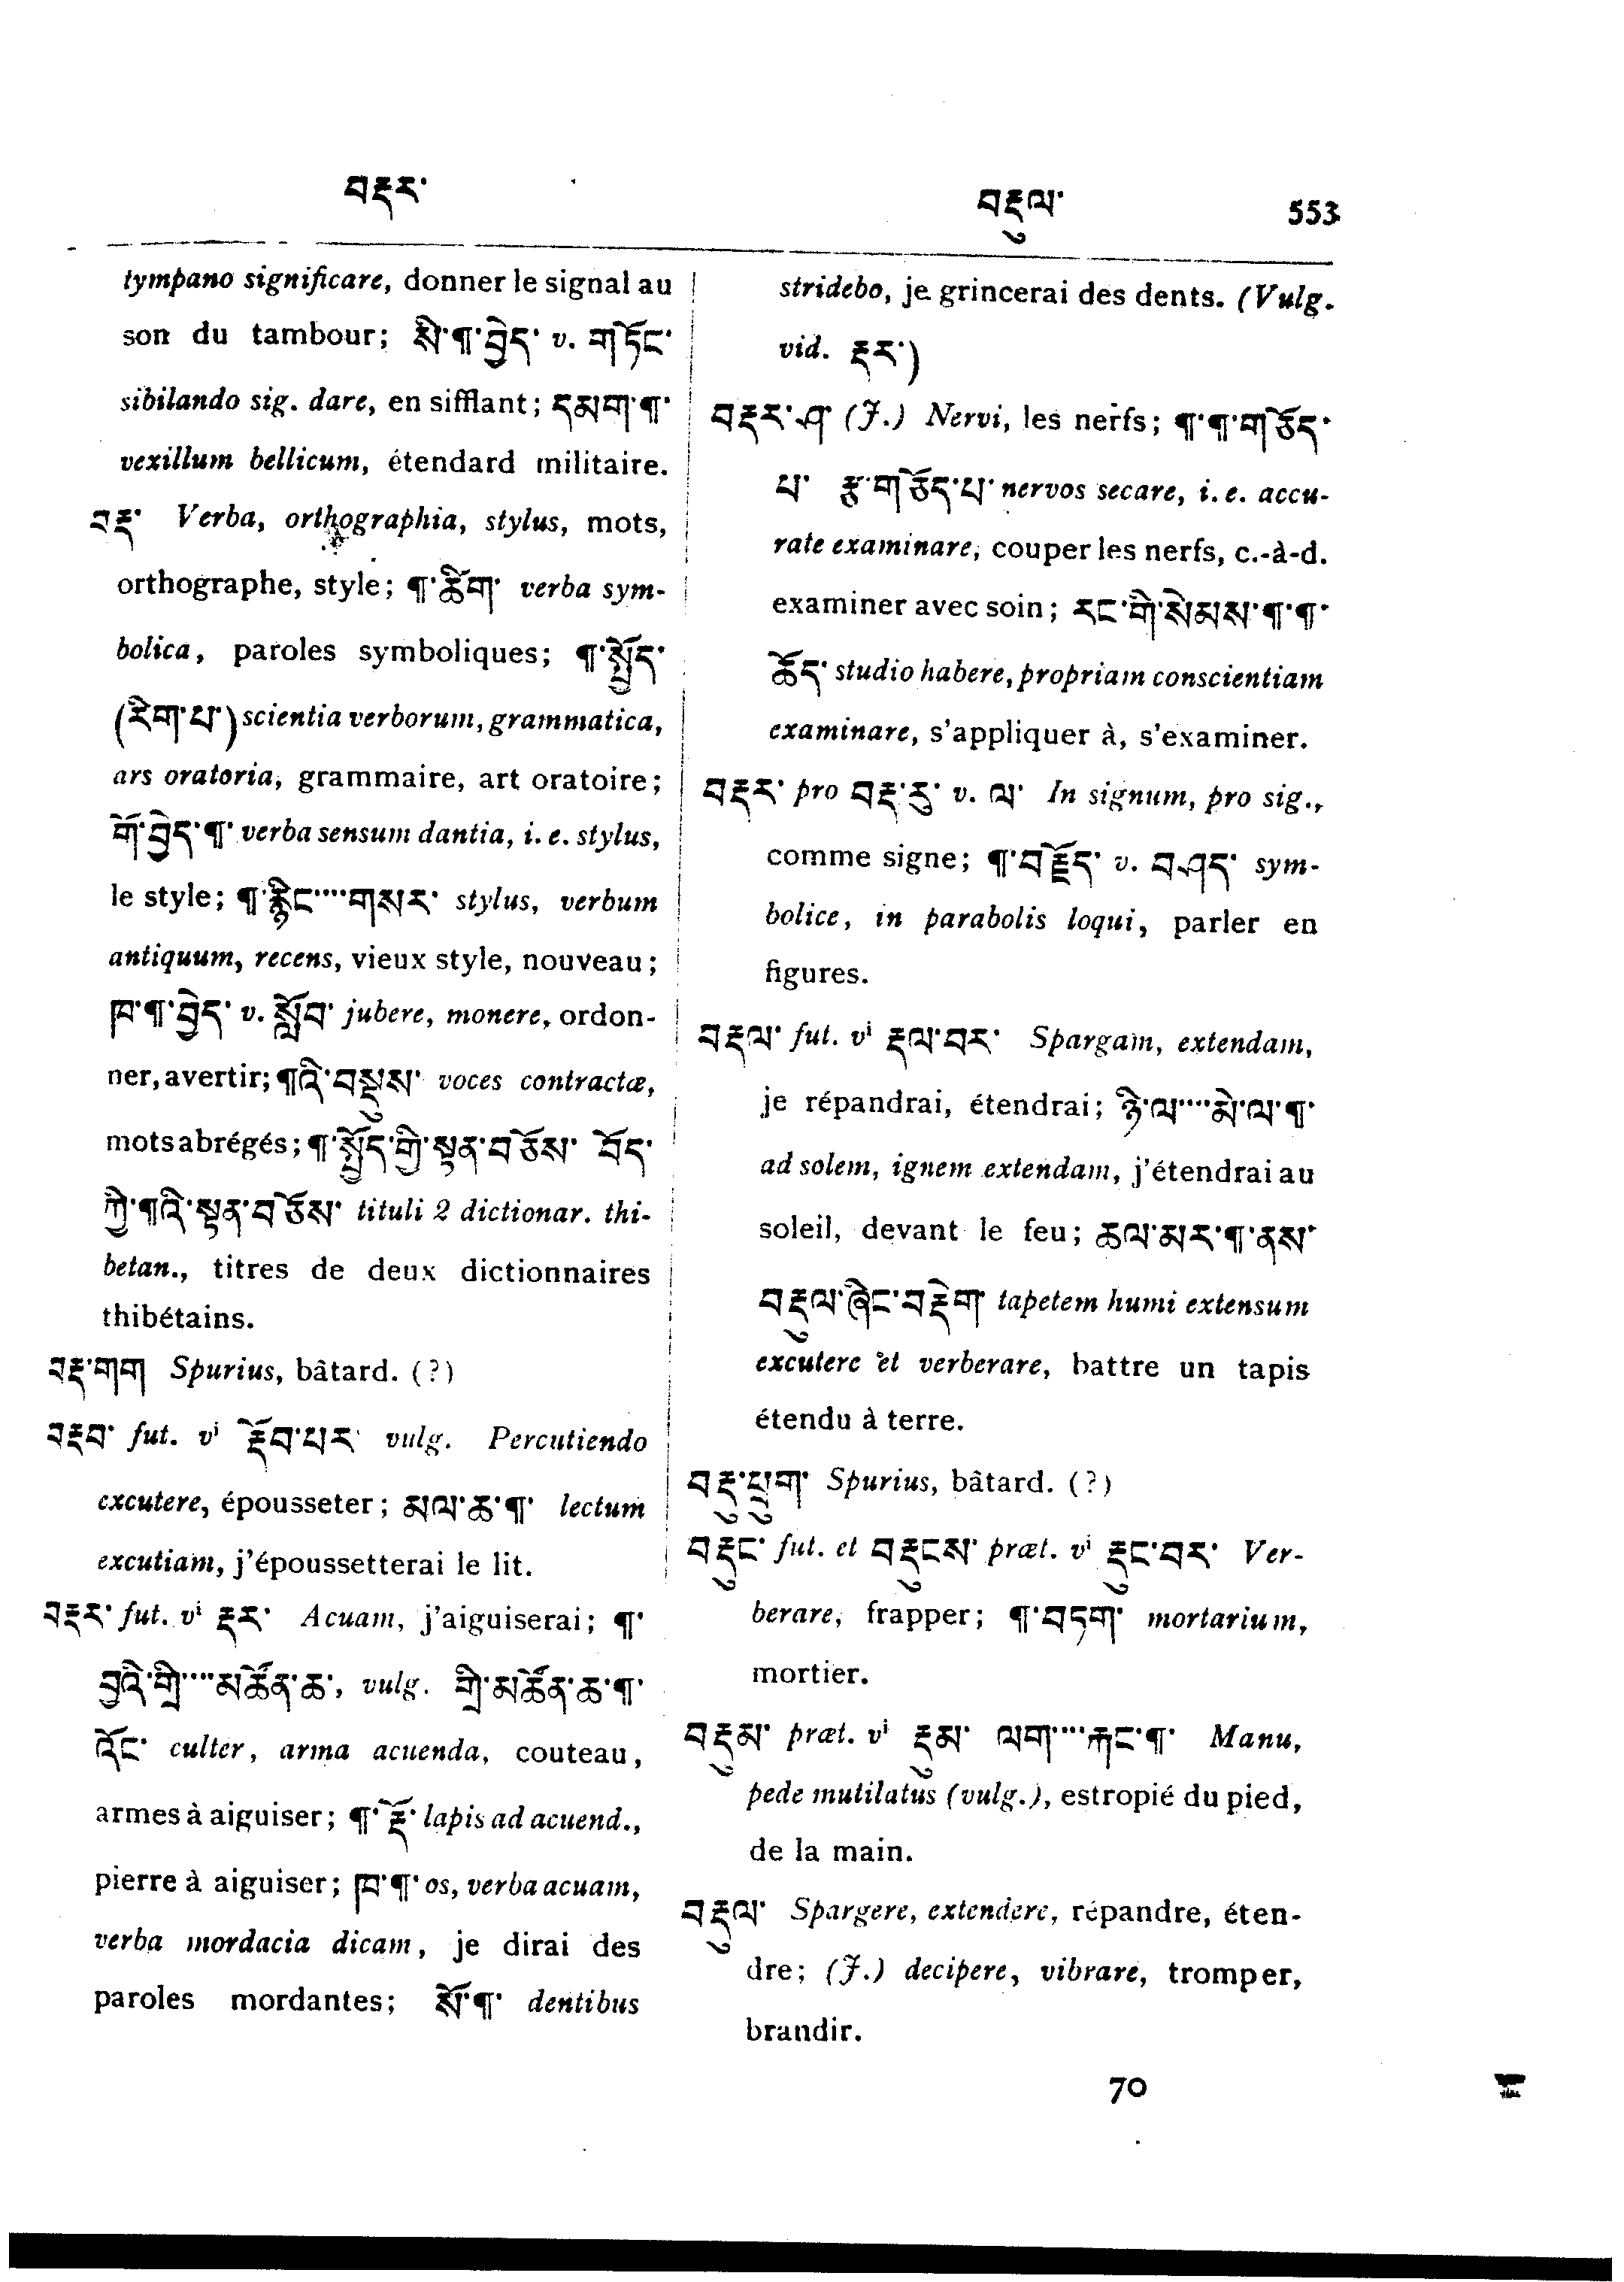 བརྡར་
བརྡུལ་ 553
tympano significare, donner le signal au
son du tambour; སེ་¶་བྱེད་ v. གཏོང་
sibilando sig. dare, en sifflant; དམག་¶་
vexillum bellicum, étendard militaire.
བརྡ་ Verba, orthographia, stylus, mots,
orthographe, style; ¶་ཚིག་ verba sym-
bolica, paroles symboliques; ¶་སྤྲོད་
(རིག་པ་) scientia verborum, grammatica,
ars oratoria, grammaire, art oratoire;
གོ་བྱེད་¶་ verba sensum dantia, i. e. stylus,
le style; ¶་རྙིང་····གསར་ stylus, verbum
antiquum, recens, vieux style, nouveau;
ཁ་¶་བྱེད་ v. སློབ་ jubere, monere, ordon-
ner, avertir; ¶འི་བསྡུས་ voces contractæ,
mots abrégés; ¶་སྤྲོད་ཀྱི་སྟན་བཅོས་ བོད་
ཀྱི་¶འི་སྟན་བཅོས་ tituli 2 dictionar. thi-
betan., titres de deux dictionnaires
thibétains.
བརྡ་གག Spurius, bâtard. (?)
བརྡབ་ fut. vⁱ རྡོབ་པར་ vulg. Percutiendo
excutere, épousseter; མལ་ཆ་¶་ lectum
excutiam, j'époussetterai le lit.
བརྡར་ fut. vⁱ རྡར་ Acuam, j'aiguiserai; ¶་
བྱའི་གྲི་····མཚོན་ཆ་, vulg. གྲི་མཚོན་ཆ་¶་
འོང་ culter, arma acuenda, couteau,
armes à aiguiser; ¶་རྡོ་ lapis ad acuend.,
pierre à aiguiser; ཁ་¶་ os, verba acuam,
verba mordacia dicam, je dirai des
paroles mordantes; སོ་¶་ dentibus
stridebo, je grincerai des dents. (Vulg.
vid. རྡར་)
བརྡར་ཤ་ (J.) Nervi, les nerfs; ¶་¶་གཅོད་
པ་ རྩ་གཅོད་པ་ nervos secare, i. e. accu-
rate examinare, couper les nerfs, c.-à-d.
examiner avec soin; རང་གི་སེམས་¶་¶་
ཆོད་ studio habere, propriam conscientiam
examinare, s'appliquer à, s'examiner.
བརྡར་ pro བརྡ་རུ་ v. ལ་ In signum, pro sig.,
comme signe; ¶་བརྗོད་ v. བཤད་ sym-
bolice, in parabolis loqui, parler en
figures.
བརྡལ་ fut. vⁱ རྡལ་བར་ Spargam, extendam,
je répandrai, étendrai; ཉི་ལ་····མེ་ལ་¶་
ad solem, ignem extendam, j'étendrai au
soleil, devant le feu; ཆལ་མར་¶་ནས་
བརྡུལ་ཞིང་བརྡེག་ tapetem humi extensum
excutere et verberare, battre un tapis
étendu à terre.
བརྡུ་ཕྲུག་ Spurius, bâtard. (?)
བརྡུང་ fut. et བརྡུངས་ præt. vⁱ རྡུང་བར་ Ver-
berare, frapper; ¶་བཏག་ mortarium,
mortier.
བརྡུམ་ præt. vⁱ རྡུམ་ ལག་····རྐང་¶་ Manu,
pede mutilatus (vulg.), estropié du pied,
de la main.
བརྡུལ་ Spargere, extendere, répandre, éten-
dre; (J.) decipere, vibrare, tromper,
brandir.
70